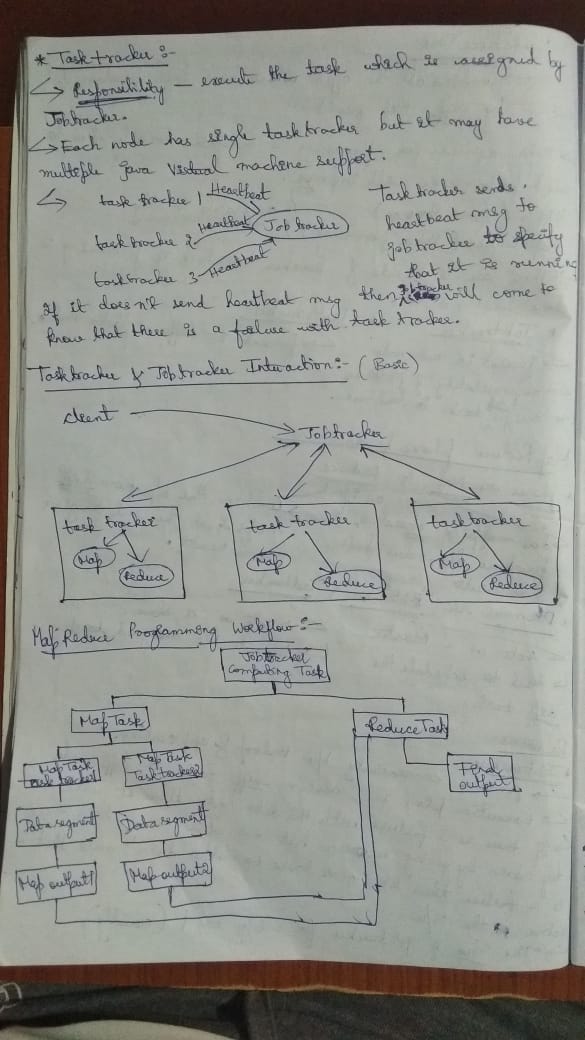 * Task tracker :-
↳ Responsibility – execute the task which is assigned by
Jobtracker.
↳ Each node has single task tracker but it may have
multiple java virtual machine support.
↳ task tracker 1 Heartbeat
task tracker 2 Heartbeat Job tracker
task tracker 3 Heartbeat
Task tracker sends
heartbeat msg to
job tracker to specify
that it is running
If it doesn't send heartbeat msg then Jobtracker will come to
know that there is a failure with task tracker.
Task tracker & Job tracker Interaction :- (Basic)
client
Jobtracker
task tracker task tracker task tracker
Map Map Map
Reduce Reduce Reduce
Map Reduce Programming Workflow :-
Jobtracker
Computing Task
Map Task Reduce Task
Map Task Map Task
task tracker1 Task tracker2
Final
output
Data segment Data segment
Map output1 Map output2